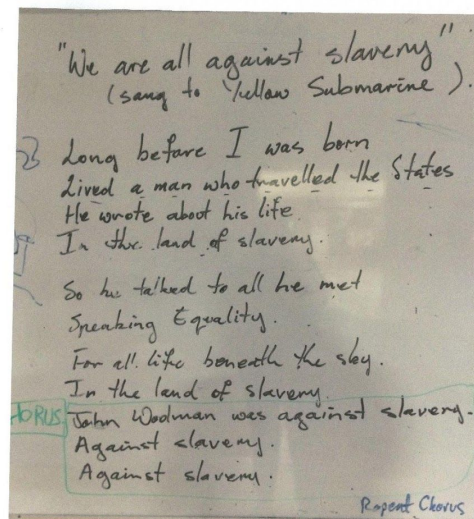 "We are all against slavery"
(sang to Yellow Submarine).
Long before I was born
Lived a man who travelled the States
He wrote about his life
In the land of slavery.
So he talked to all he met
Speaking Equality.
For all life beneath the sky.
In the land of slavery.
HORUS John Woolman was against slavery.
Against slavery.
Against slavery.
Repeat Chorus